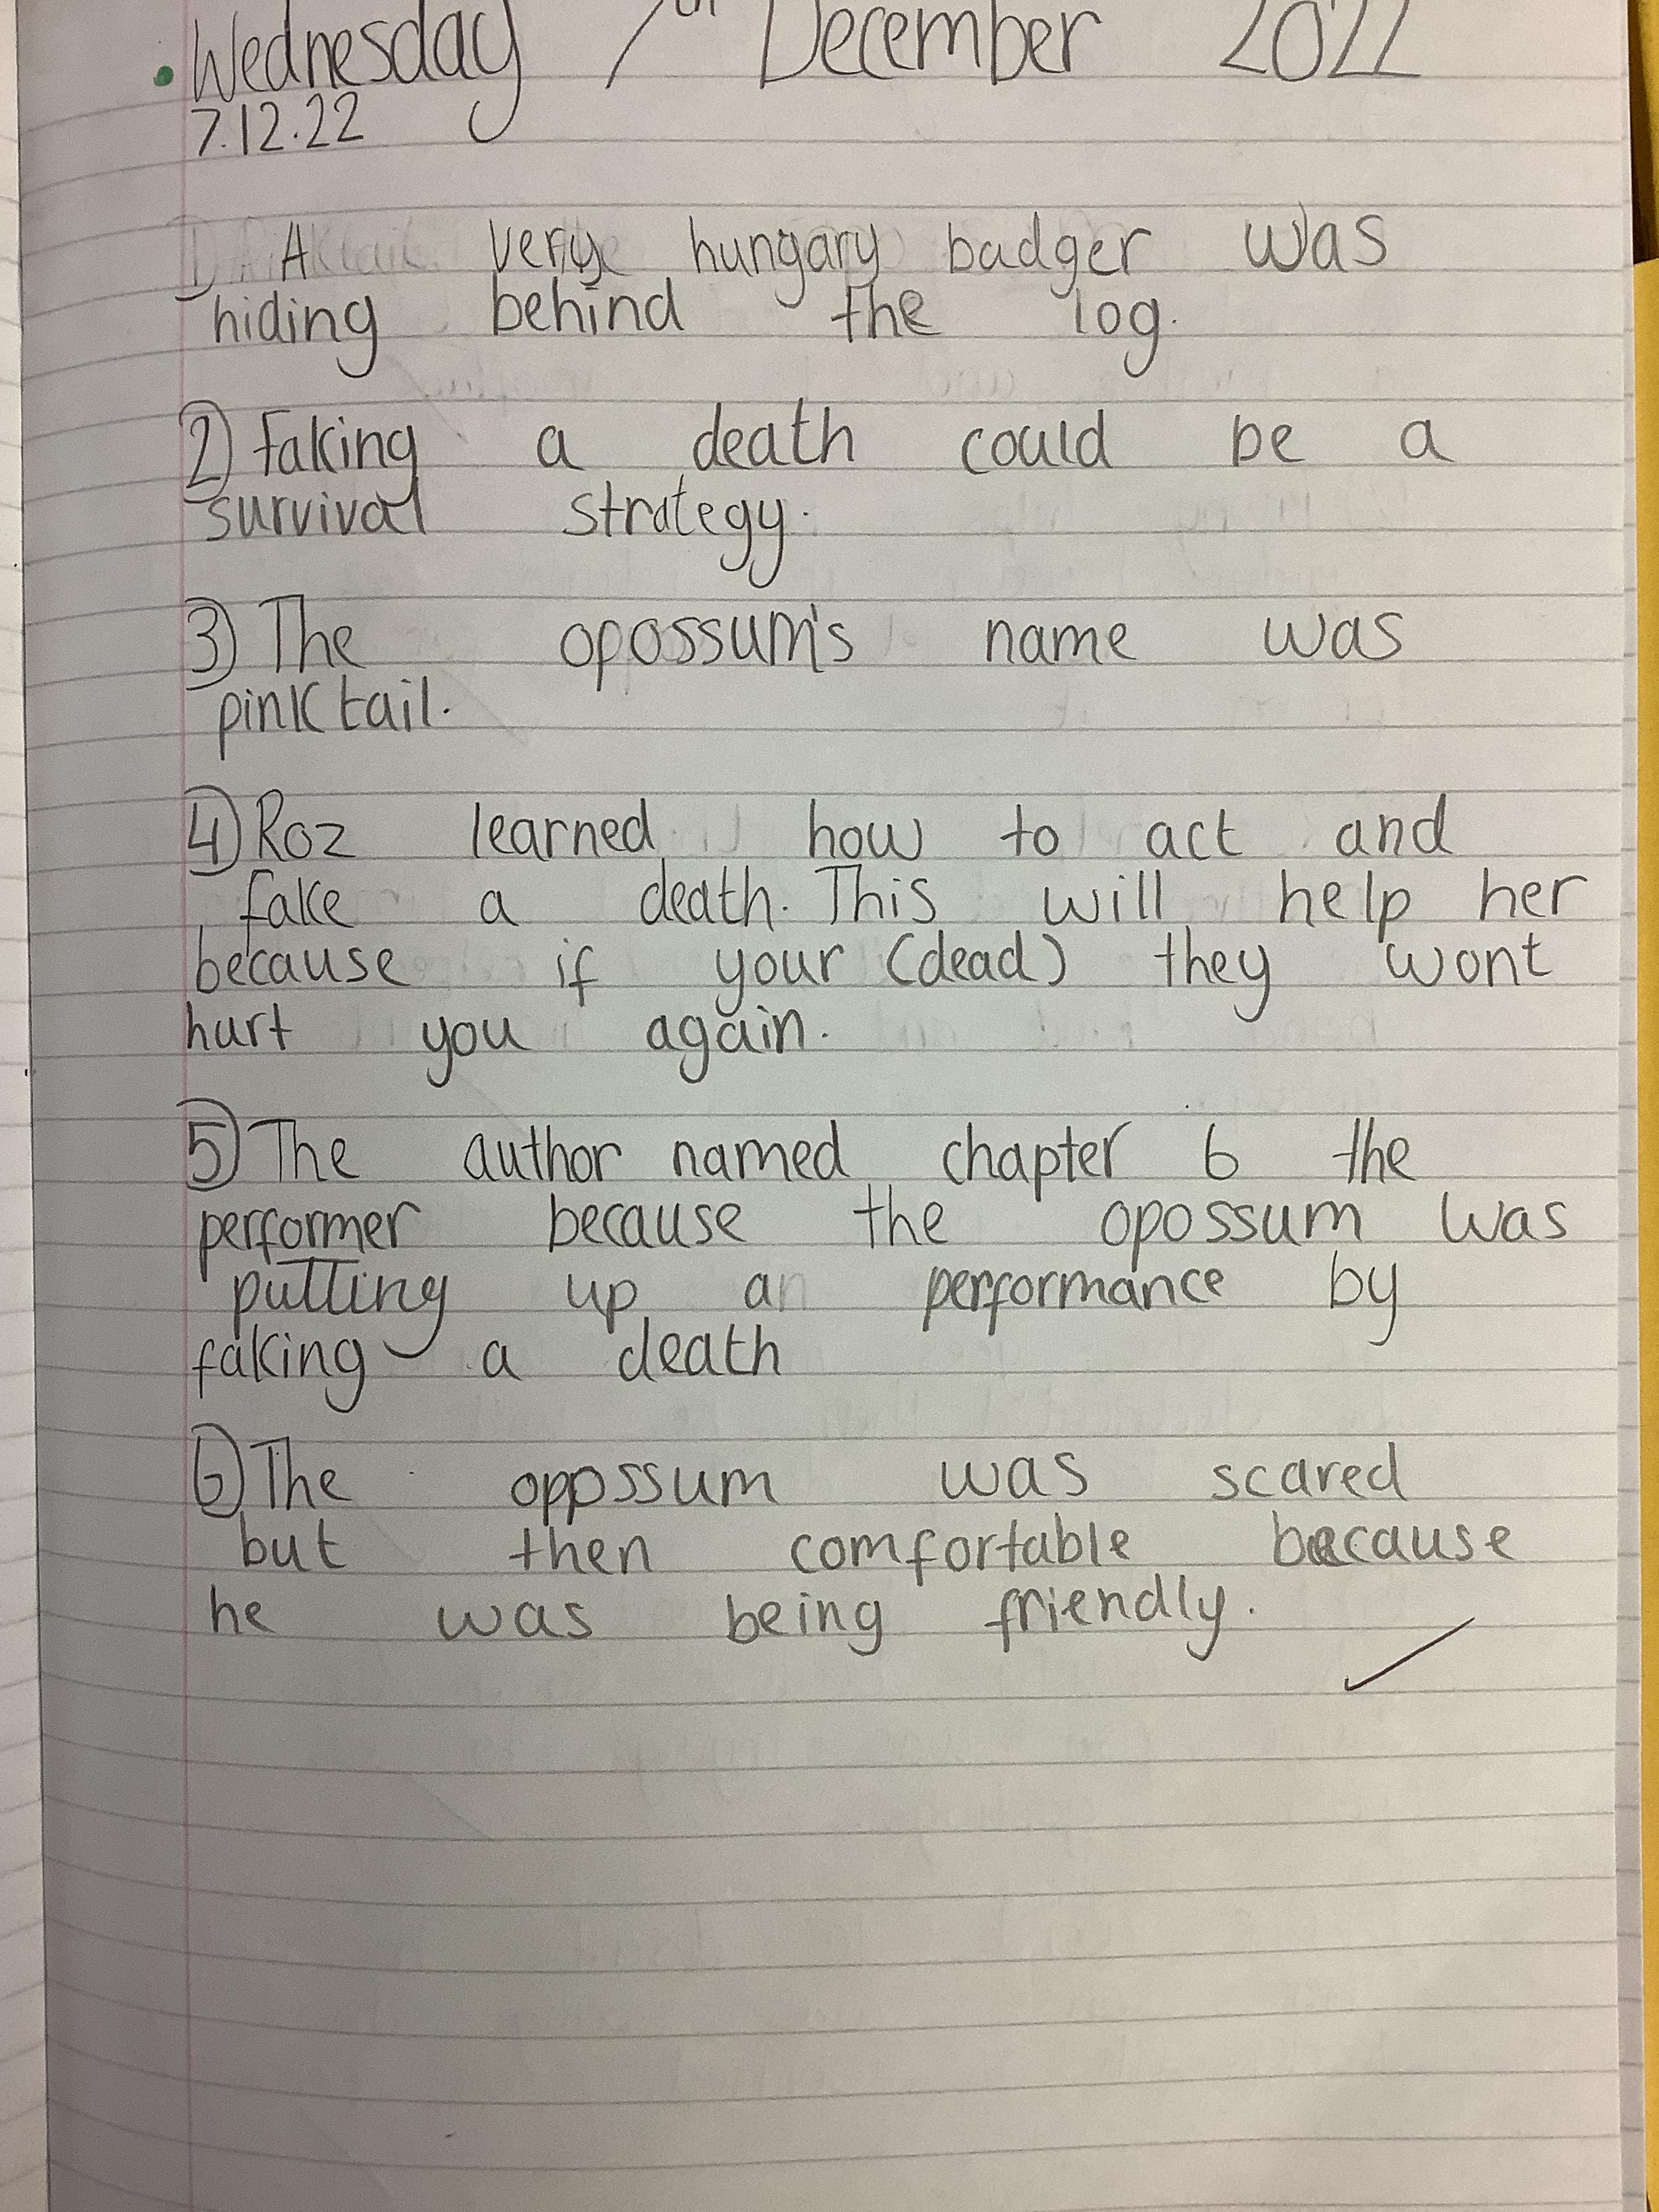 Wednesday 7th December 2022
7.12.22
1) A very hungary badger was
hiding behind the log.
2) faking a death could be a
survival strategy.
3) The opossum's name was
pinktail.
4) Roz learned how to act and
fake a death. This will help her
because if your (dead) they wont
hurt you again.
5) The author named chapter 6 the
performer because the opossum was
putting up an performance by
faking a death
6) The oppssum was scared
but then comfortable because
he was being friendly.